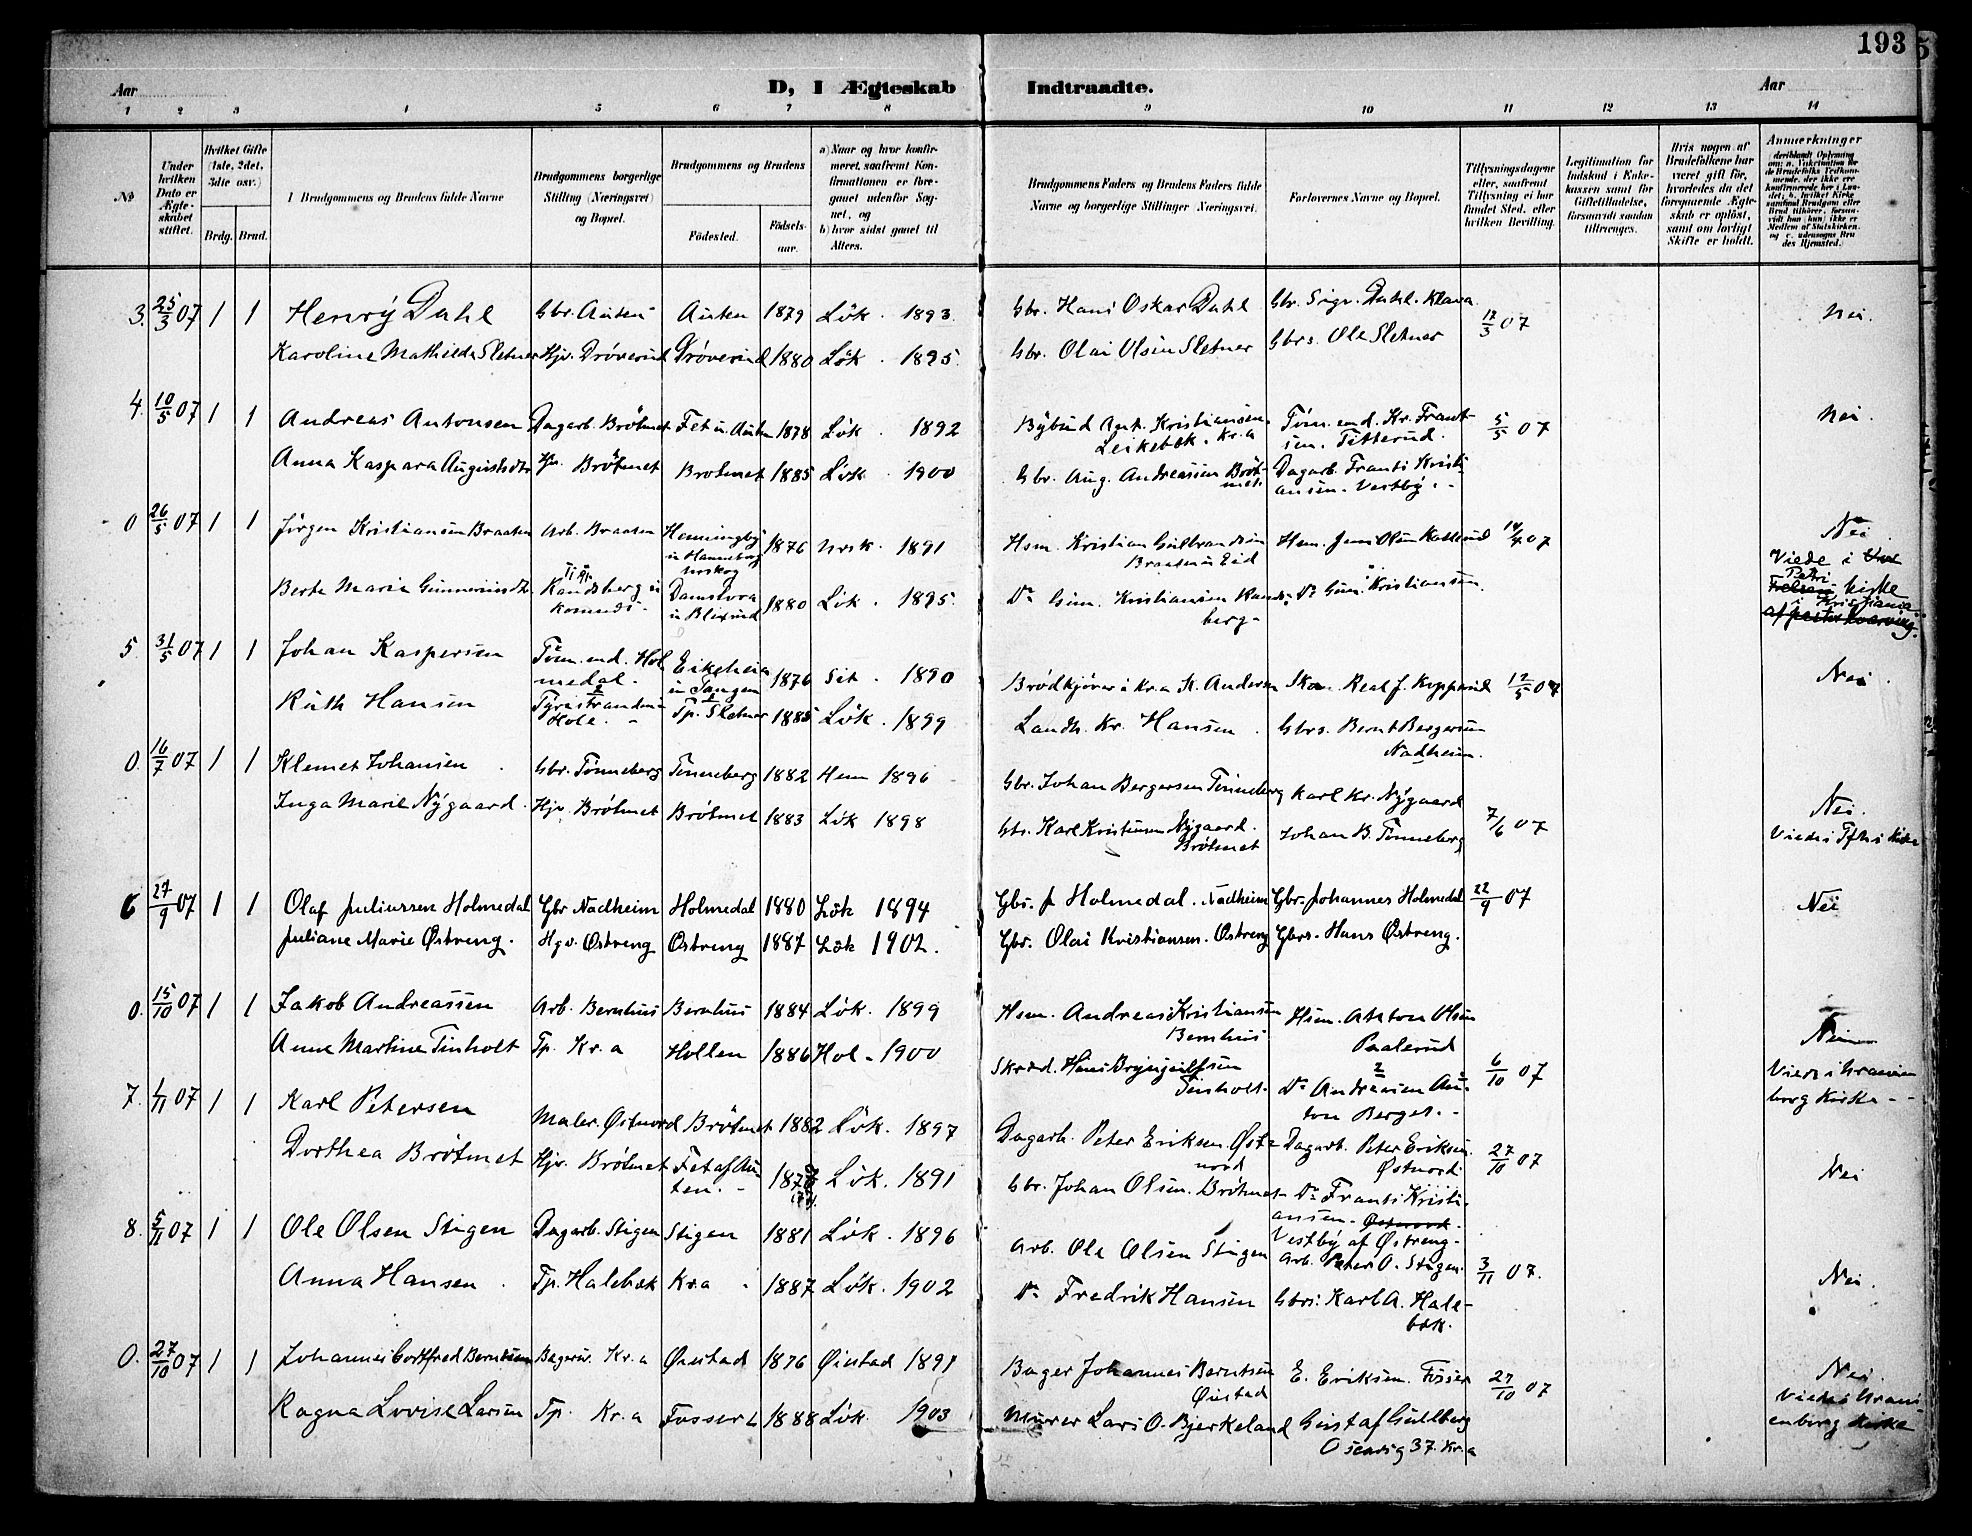 193
Aar
D, I Ægteskab Indtraadte.
Aar
1 2 3 4 5 6 7 8 9 10 11 12 13 14
No
Under hvilken Dato er Ægteskabet stiftet.
Hvilket Gifte (1ste, 2det, 3die osv.)
Brdg. Brud.
I Brudgommens og Brudens fulde Navne
Brudgommens borgerlige Stilling (Næringsvei) og Bopæl.
Brudgommens og Brudens
Fødested.
Fødselsaar.
a) Naar og hvor konfirmeret, saafremt Konfirmationen er foregaaet udenfor Sognet, og
b) hvor sidst gaaet til Alters.
Brudgommens Faders og Brudens Faders fulde Navne og borgerlige Stillinger Næringsvei.
Forlovernes Navne og Bopæl.
Tillysningsdagene eller, saafremt Tillysning ei har fundet Sted, efter hvilken Bevilling.
Legitimation for Indskud i Enkekassen samt for Giftetilladelse, forsaavidt saadan tiltrænges.
Hvis nogen af Brudefolkene har været gift før, hvorledes da det foregaaende Ægteskab er opløst, samt om lovligt Skifte er holdt.
Anmerkninger
3. 25/3 07 1 1 Henry Dahl Gbr. Auten Auten 1879 Lök. 1893. Gbr. Hans Oskar Dahl Gbr. Sigv. Dahl. Klava 17/3 07 Nei.
Karoline Mathilde Sletner Hjv. Dröverud Dröverud 1880 Lök. 1895. Gbr. Olai Olsen Sletner Gbrs. Ole Sletner
4. 10/5 07 1 1 Andreas Antonsen Dagarb. Brötmet Fet u. Auten 1878 Lök. 1892 Bybud Ant. Kristiansen. Töm.end. Kr. Frant- 5/5 07 Nei.
Leikebæk. Kr.a sen. Titterud.
Anna Kaspara Augustsdtr Hjv. Brötmet Brotmet 1885 Lök. 1900 Gbr. Aug. Andreassen Bröt- Dagarb. Frants Kristi-
met. ansen. Vestby.
0 26/5 07 1 1 Jörgen Kristiansen Braaten Arb. Braaten Henningby 1876 Ursk. 1891 Hsm. Kristian Gulbrandsen Hsm. Jens Olsen Kollerud 14/4 07 Nei
u Hanneborg Braaten u Eid
Urskog
Berte Marie Gunneriusdtr Tj. Randsberg u Damstora 1880 Lök. 1895. Do Gun. Kristiansen Rands- Do Gun. Kristiansen. Viede i
u Blixrud berg- Petri kirke
i Kristiania
5. 31/5 07 1 1 Johan Kaspersen Töm.end. Hol Eikeheia 1876 Set. 1890 Brödkjörer i Kr.a K. Andersen 12/5 07 Nei.
medal. u Tangen
Ruth Hansen Tyristranden Tp. Sletner 1885 Lök. 1899 Landh. Kr. Hansen. Gbrs. Bernt Bergersen
Hole. Nadheim.
0. 16/7 07 1 1 Klemet Johansen Gbr. Tönneberg Tönneberg 1882 Hem 1896 Gbr. Johan Bergersen Tönneberg Karl Kr. Nygaard 7/6 07 Nei.
Inga Marie Nygaard. Hjv. Brötmet Brötmet 1883 Lök 1898 Gbr. Karl Kristiansen Nygaard. Johan B. Tönneberg
Brötmet
6 27/9 07 1 1 Olaf Juliussen Holmedal Gbr Nadheim Holmedal 1880 Lök 1894 Gbr. J Holmedal. Nadheim Gbr. Johannes Holmedal 22/9 07 Nei
Juliane Marie Østreng. Hgv. Østreng Østreng 1887 Lök 1902. Gbr. Olai Kristiansen. Østreng Gbrs. Hans Østreng.
0. 15/10 07 1 1 Jakob Andreassen Arb. Bernhus Bernhus 1884 Lök. 1899 Hsm. Andreas Kristiansen Hsm. Anton Olsen
Bernhus Paalerud Nei
Anne Martine Tinholt Tp. Kr.a Hollen 1886 Hol. 1900 Skræd. Hans Brynjulfsen 6/10 07 Viede i Uranien
Tinholt. Do Andreasen An- borg Kirke
ton Berger.
7. 1/11 07 1 1 Karl Petersen Maler. Østnord Brötmet 1882 Lök. 1897 Dagarb. Peter Eriksen Øst- Dagarb. Peter Eriksen. 27/10 07
nord Østnord.
Dorthea Brötmet Hjv. Brötmet Fet af Au- Lök. 1891 Gbr. Johan Olsen. Brötmet Do Frants Kristi- Nei
ten. ansen. Østnord.
Vestby af Østreng-
8. 5/11 07 1 1 Ole Olsen Stigen Dagarb. Stigen Stigen 1881 Lök. 1896 Arb. Ole Olsen Stigen Arb. Peter O. Stigen. 3/11 07.
Anna Hansen Tp. Halebæk Kr.a 1887 Lök. 1902 Do Fredrik Hansen Gbrs: Karl A. Hale- Nei.
bæk.
0. 27/10 07 1 1 Johannes Gottfred Berntsen Bagersv. Kr.a Øiestad 1876 Øiestad 1891 Bager Johannes Berntsen E. Eriksen. Fosser 27/10 07 Nei.
Øiestad Viede i Urani-
Ragna Lovise Larsen Tp. Kr.a Fosser 1888 Lök. 1903 Murer Lars O. Bjerkeland Gustaf Gullberg enborg Kirke
Osenvig 37. Kr.a